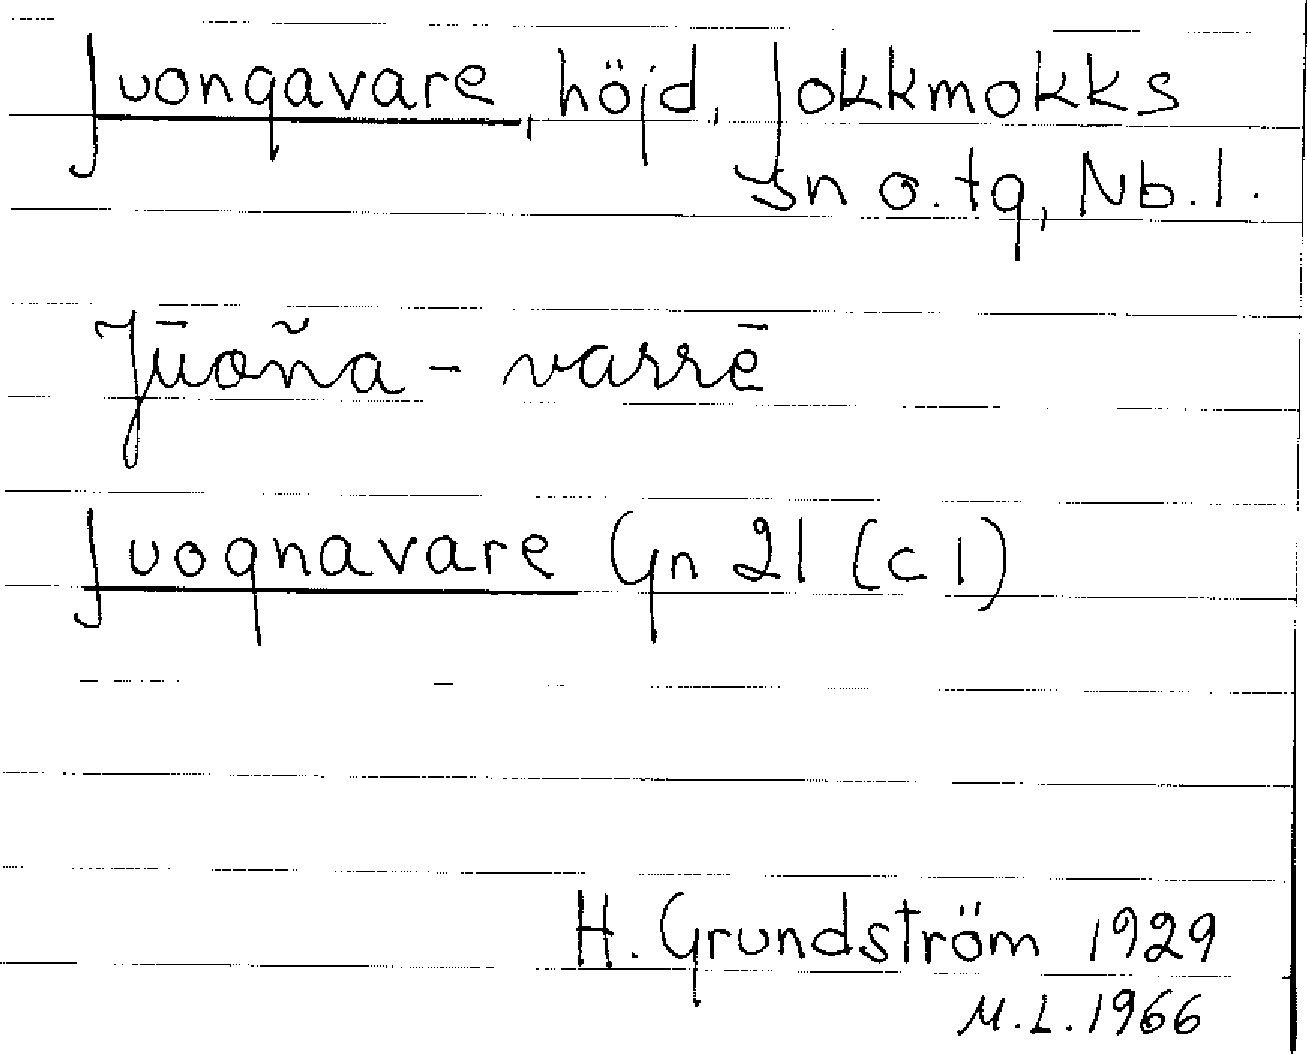 Juongavare, höjd, Jokkmokks
sn o. tg, Nb. l.
Jūoña - varrē
Juognavare Gn 21 (c 1)
H. Grundström 1929
M.L. 1966